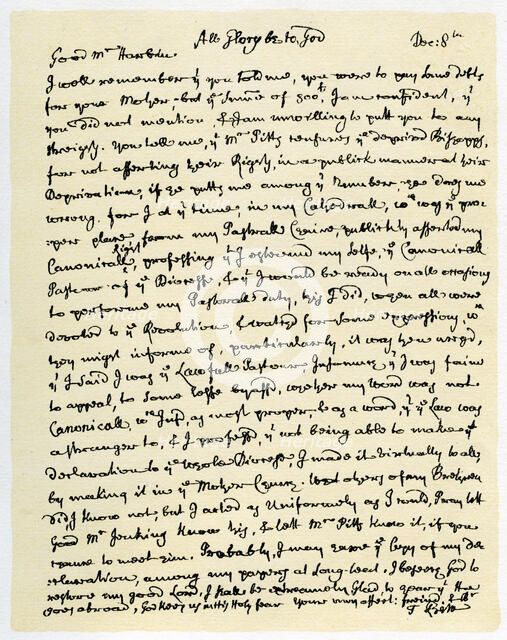 All Glory be to God
Dec: 8th
Good Mr Harbin.
I well remember yt you told me, you were to pay some debts
for your Mother but ye summe of 300l I am confident, yt
you did not mention, & I am unwilling to putt you to any
streights. You tell me, yt Mr Pitts censures ye deprived Bishopps,
for not asserting their Rights, in a publick manner at their
Deprivation, if he putts me among yt Number, he does me
wrong. for I at yt time, in my Cathedrall, wch was ye pro-
per place from my Pastorall Chaire, publickly asserted my
Canonicall Right, professing yt I esteemd my selfe, ye Canonicall
Pastour of ys Diocesse, & yt I would be ready on all occasions
to performe my Pastorall duty, this I did, when all were
devoted to ye Revolution, & watch'd for some expressions, wch
they might informe of, particularly, it was here urg'd,
yt I said I was ye Lawfull Pastour Insomuch yt I was faine
to appeal, to some before by, whether my word was not
Canonicall, wch I us'd, as most proper, & as a word, yt ye Law was
a stranger to, & I profess'd, yt not being able to make yt
declaration to ye whole Diocesse, I made it virtually to all,
by making it in ye Mother Church. What others of my Brethren
did, I know not, but I acted as Uniformely as I could, Pray lett
Good Mr Jenkins know this, & lett Mr Pitts know it, if you
chance to meet him. Probably, I may have ye Copy of my de-
claration, among my papers at Long-leat. I beseech God to
restore my good Lord, I shall be extreamly Glad, to hear yt He
goes abroad, God keep us in His Holy fear Your very affect: freind, & Br